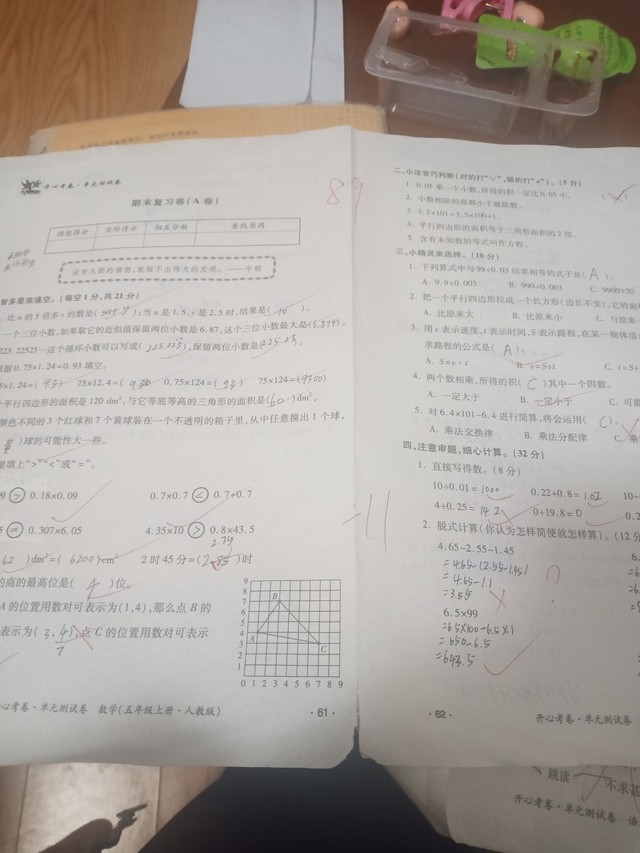 开心考卷·单元测试卷
期末复习卷(A卷)
猜想得分 实际得分 相差分数 查找原因
没有大胆的猜想,就做不出伟大的发现。——牛顿
智多星来填空。(每空1分,共21分)
比a的5倍多y的数是( ),当a是1.5,y是2.5时,结果是(10)。
一个三位小数,如果取它的近似值保留两位小数是6.87,这个三位小数最大是(6.874)。
225.22525…这个循环小数可以写成( ),保留两位小数是( )。
根据0.75×1.24=0.93填空。
5×1.24=(93) 75×12.4=(930) 0.75×124=(93) 75×124=(9300)
个平行四边形的面积是120 dm²,与它等底等高的三角形的面积是(60)dm²。
颜色不同的3个红球和7个黄球装在一个不透明的箱子里,从中任意摸出1个球,
(黄)球的可能性大一些。
里填上“>”“<”或“=”。
9 > 0.18×0.09 0.7×0.7 < 0.7+0.7
5 = 0.307×6.05 4.35×10 > 0.8×43.5
62)dm²=(6200)cm² 2时45分=(2.85)时
2.74
的商的最高位是( )位。
A的位置用数对可表示为(1,4),那么点B的
表示为(3,4),点C的位置用数对可表示
7
9
8
7
6
5
4
3
2
1
0 1 2 3 4 5 6 7 8 9
A
B
C
开心考卷·单元测试卷 数学(五年级上册·人教版)
·61·
89
-11
二、小法官巧判断(对的打“√”,错的打“×”)。(5分)
1. 0.05乘一个小数,所得的积一定比0.05小。
2. 小数相除的商都小于被除数。
3. 3.5×101=3.5×100+1。
4. 平行四边形的面积等于三角形面积的2倍。
5. 含有未知数的等式叫作方程。
三、小精灵来选择。(10分)
1. 下列算式中与99÷0.03结果相等的式子是(A)。
A. 9.9÷0.003 B. 990÷0.003 C. 9900÷30
2. 把一个平行四边形拉成一个长方形(边长不变),它的面积
A. 比原来大 B. 比原来小 C. 与原来
3. 用v表示速度,t表示时间,S表示路程,在某一物体活
求路程的公式是(A)
A. S=v·t B. v=S÷t C. t=S÷
4. 两个数相乘,所得的积(C)其中一个因数。
A. 一定大于 B. 一定小于 C. 可能
5. 对6.4×101-6.4进行简算,将会运用(C)。
A. 乘法交换律 B. 乘法分配律 C. 乘
四、注意审题,细心计算。(32分)
1. 直接写得数。(8分)
10÷0.01=1000 0.22+0.8=1.02
4÷0.25=14.2 0÷19.8=0 0.2
2. 脱式计算(你认为怎样简便就怎样算)。(12分
4.65-2.55-1.45
=4.65-(2.55-1.45)
=4.65-1.1
=3.55
6.5×99
=6.5×100-6.5×1
=650-6.5
=643.5
·62·
开心考卷·单元测试
跳读
不求甚
开心考卷·单元测试卷 语